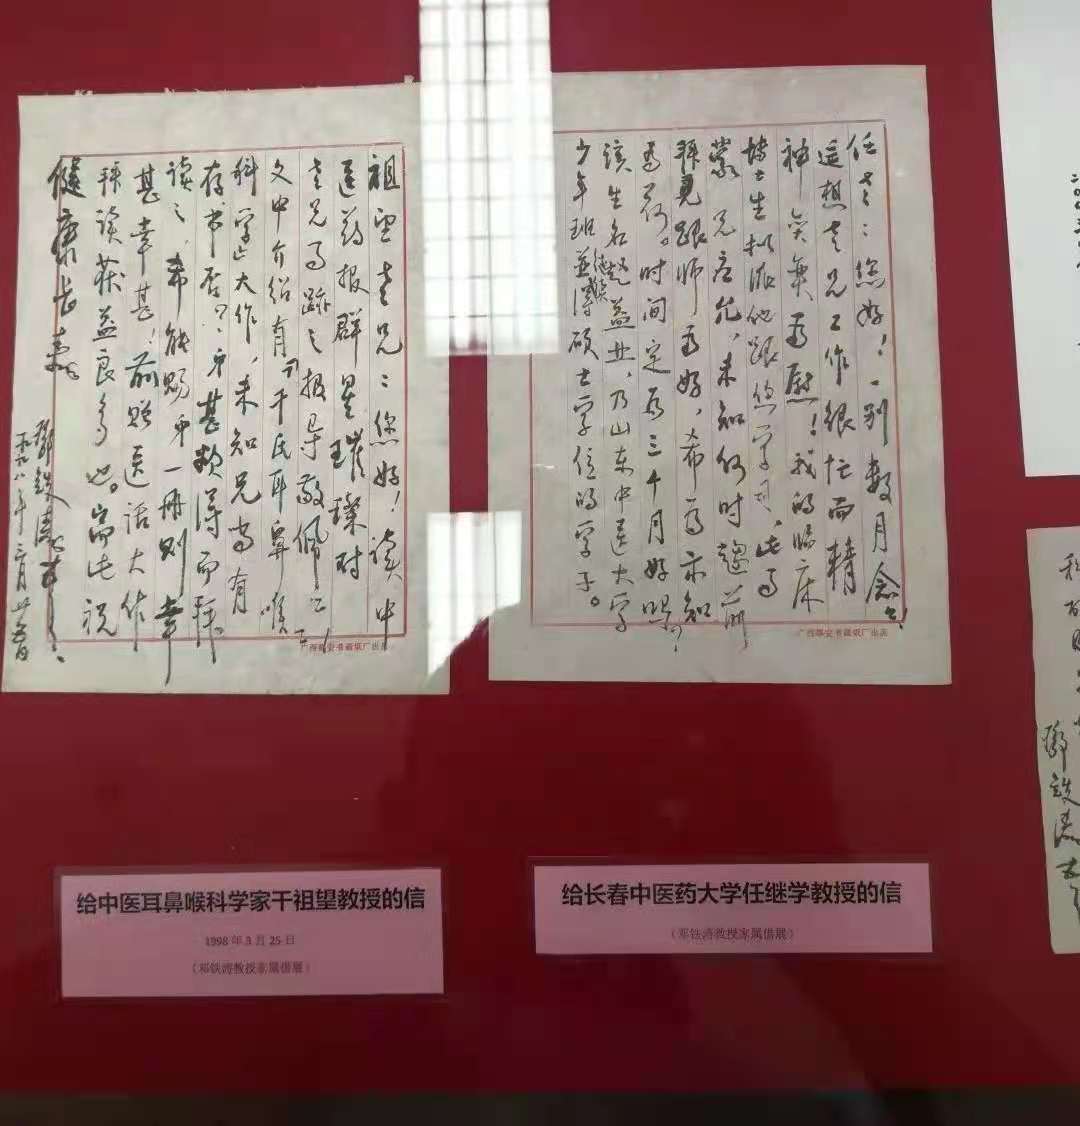 祖望老兄：您好！读中
医药报群星璀璨对
老兄事迹之报导敬佩之至！
文中介绍有《干氏耳鼻喉
科学》大作，未知兄尚有
存书否？弟甚欲得而拜
读之，希能赐弟一册则幸
甚幸甚！前赠医话大作
拜读获益良多也。耑此祝
健康长寿
邓铁涛
一九九八年三月廿五日
广西雅安书画纸厂出品
任老：您好！一别数月念念
遥想老兄工作很忙而精
神奕奕为慰！我的临床
博士生拟派他跟您学习，此事
蒙兄应允，未知何时趋前
拜见跟师为好，希予示知
为荷。时间定为三个月好吗？
该生名赵益业，乃山东中医大学
少年班并得硕士学位的学子。
广西雅安书画纸厂出品
邓铁涛
给中医耳鼻喉科学家干祖望教授的信
1998年3月25日
（邓铁涛教授家属借展）
给长春中医药大学任继学教授的信
（邓铁涛教授家属借展）